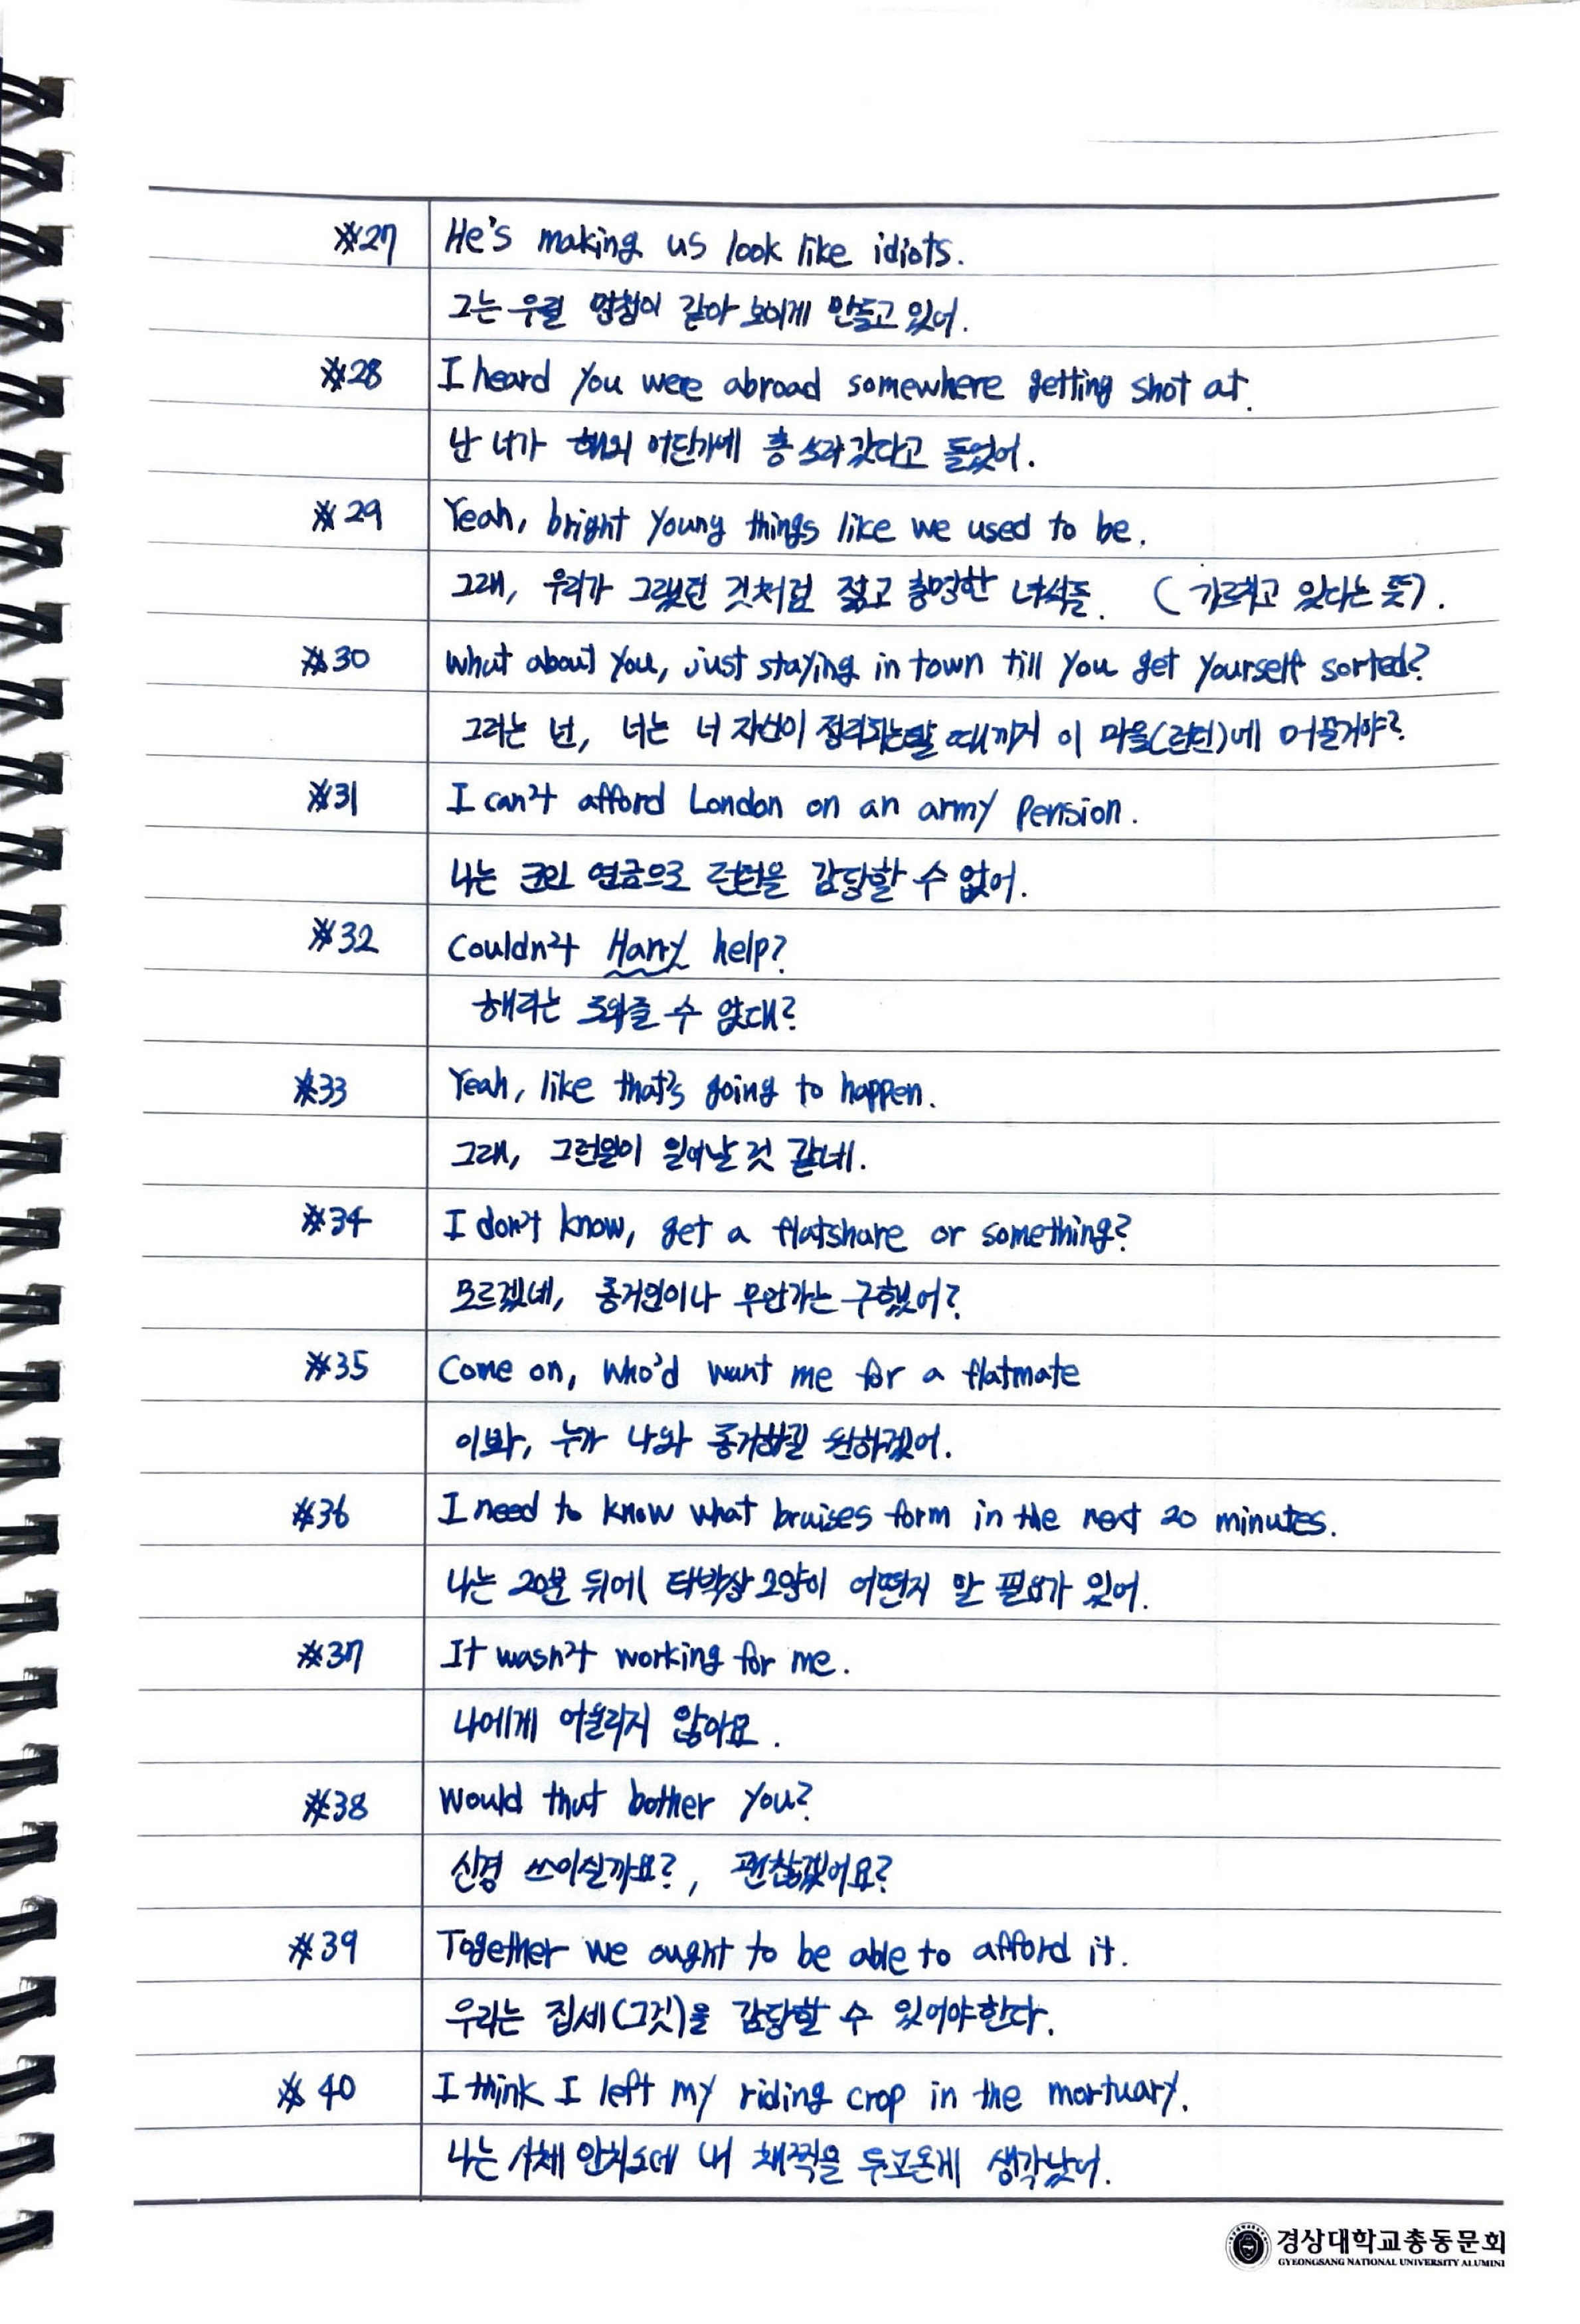 #27 He's making us look like idiots.
그는 우릴 멍청이 같아 보이게 만들고 있어.
#28 I heard you were abroad somewhere getting shot at.
난 너가 해외 어딘가에 총 쏘러 갔다고 들었어.
#29 Yeah, bright young things like we used to be.
그래, 우리가 그랬던 것처럼 젊고 총명한 녀석들. (가르치고 있다는 뜻).
#30 What about you, just staying in town till you get yourself sorted?
그러는 넌, 너는 너 자신이 정리될 때까지 이 마을(런던)에 머물거야?
#31 I can't afford London on an army pension.
나는 군인 연금으로 런던을 감당할 수 없어.
#32 Couldn't Harry help?
해리는 도와줄 수 없대?
#33 Yeah, like that's going to happen.
그래, 그런일이 일어날 것 같네.
#34 I don't know, get a flatshare or something?
모르겠네, 동거인이나 무언가는 구했어?
#35 Come on, who'd want me for a flatmate
이봐, 누가 나와 동거하길 원하겠어.
#36 I need to know what bruises form in the next 20 minutes.
나는 20분 뒤에 타박상 모양이 어떤지 알 필요가 있어.
#37 It wasn't working for me.
나에게 어울리지 않아요.
#38 Would that bother you?
신경 쓰이실까요?, 괜찮겠어요?
#39 Together we ought to be able to afford it.
우리는 집세(그것)을 감당할 수 있어야한다.
#40 I think I left my riding crop in the mortuary.
나는 사체 안치소에 내 채찍을 두고온게 생각났어.
경상대학교총동문회
GYEONGSANG NATIONAL UNIVERSITY ALUMINI